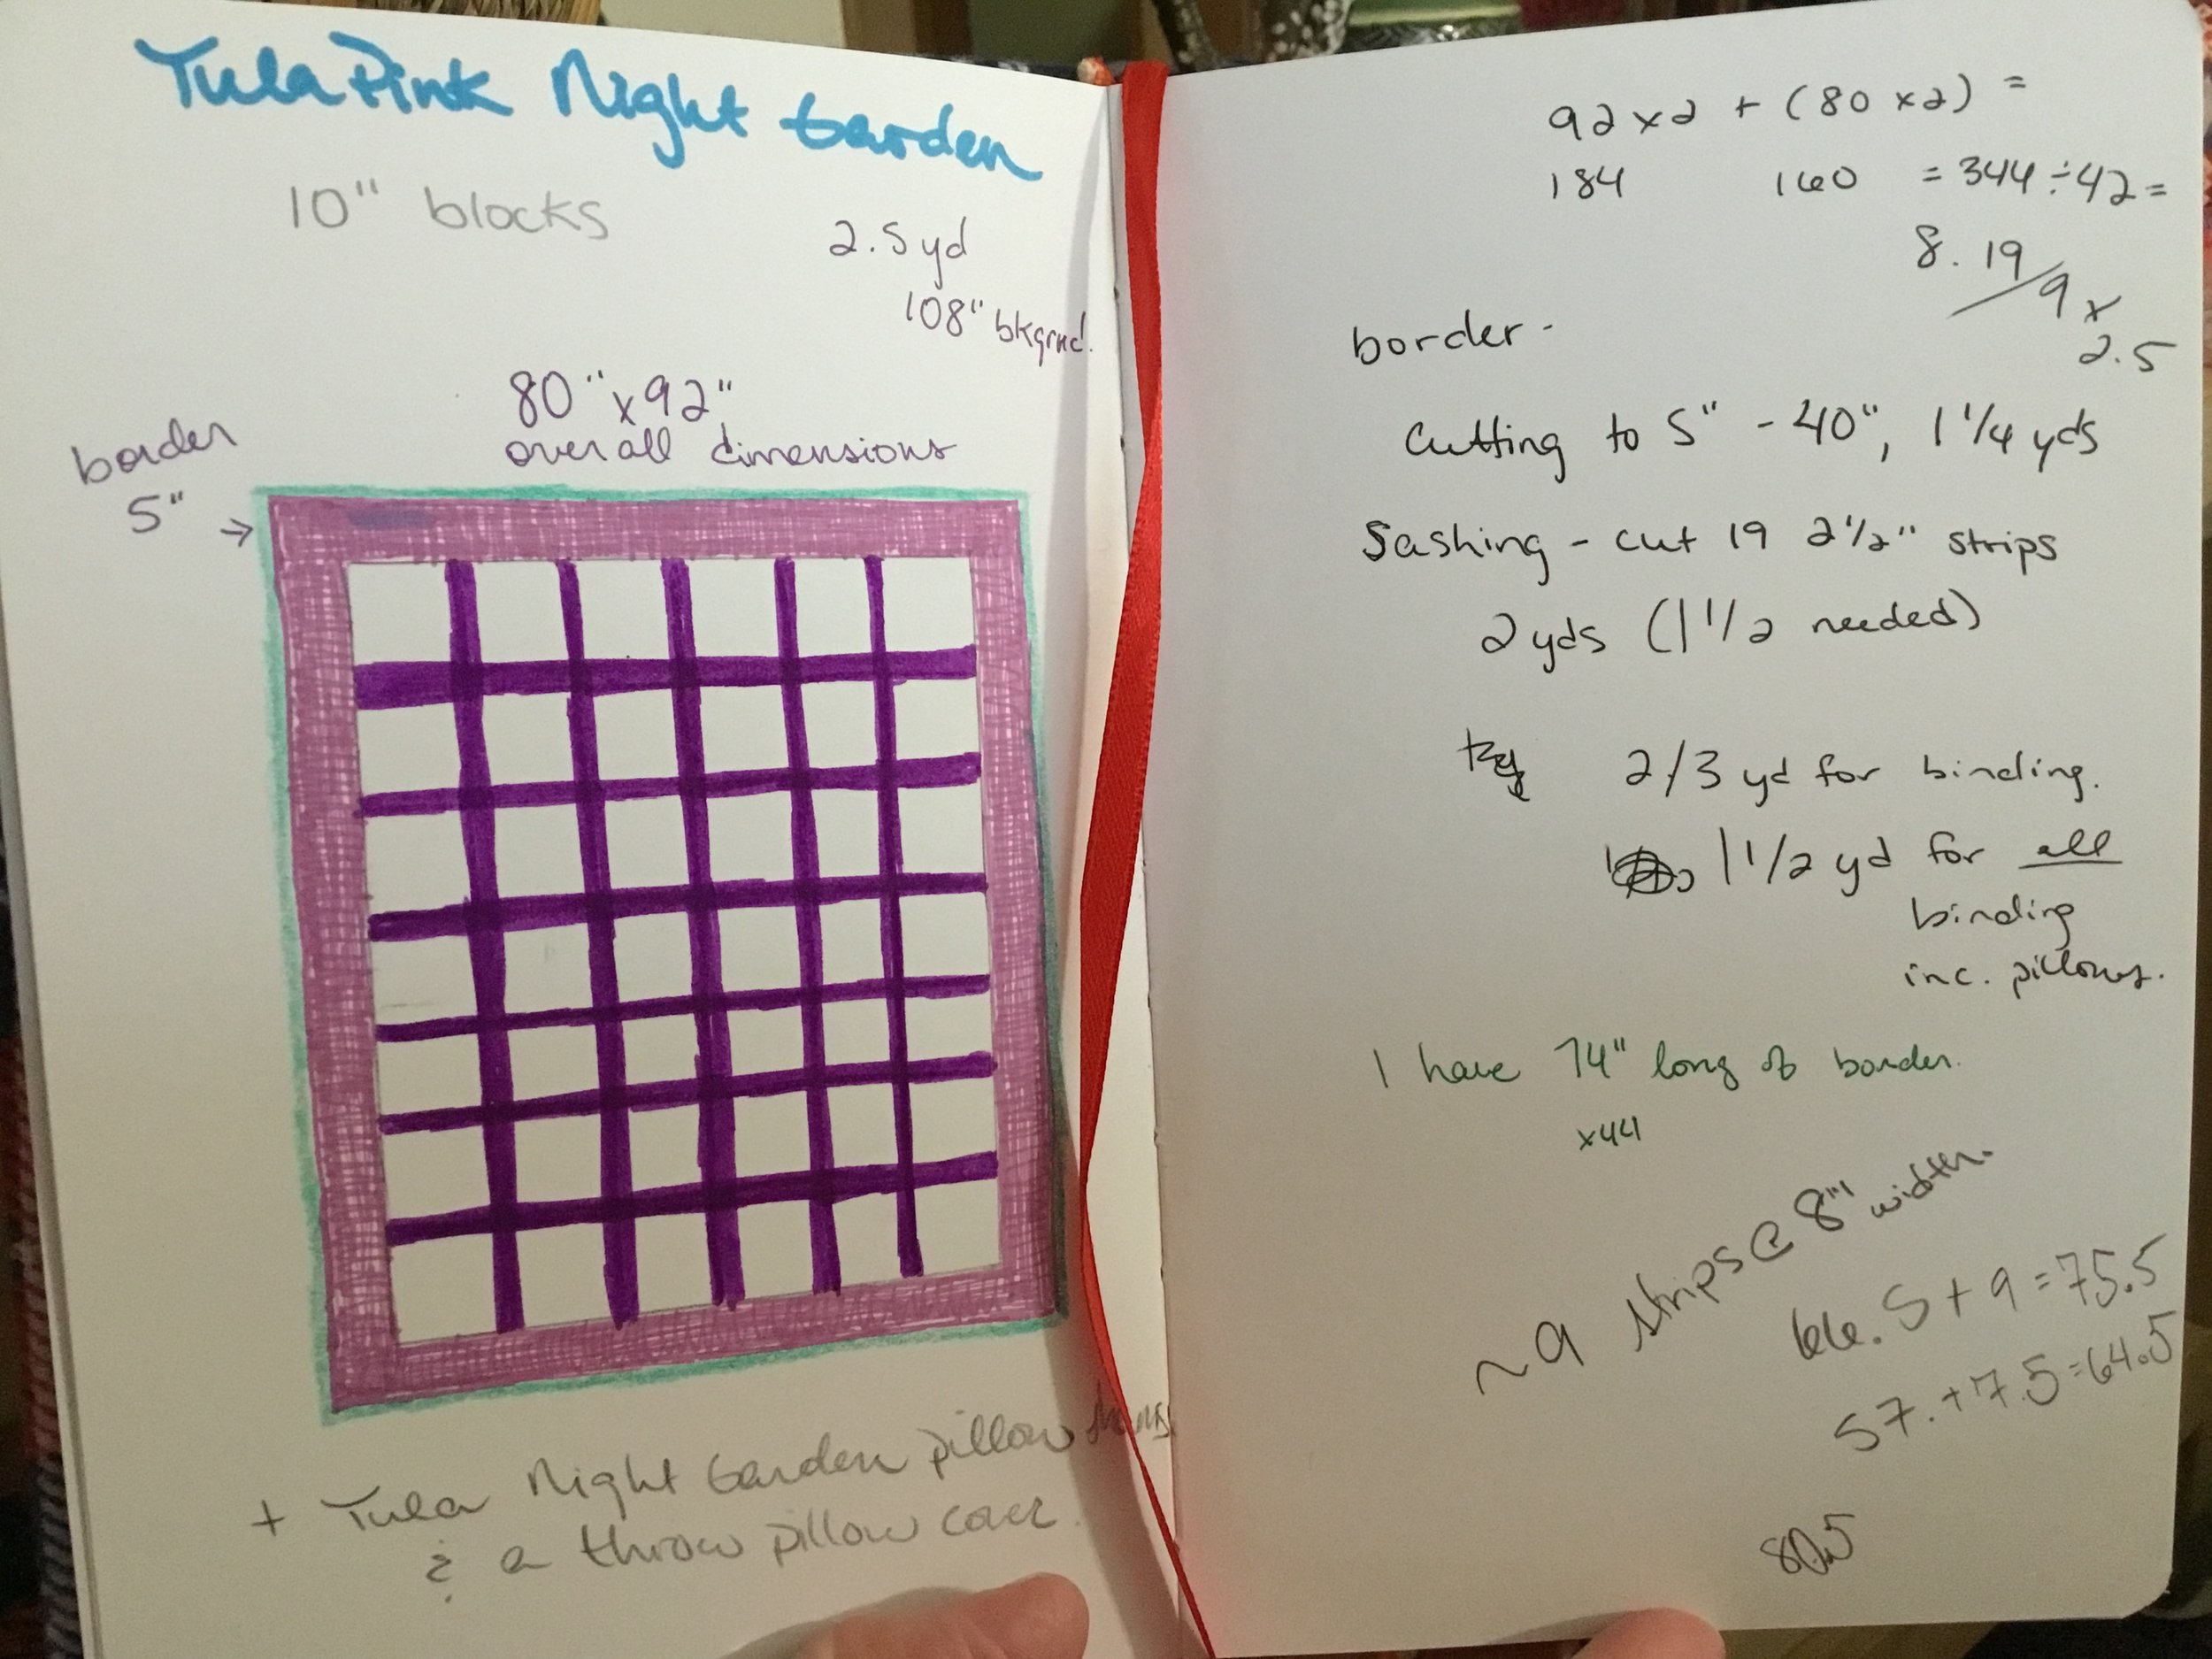 Tula Pink Night Garden
10" blocks
2.5 yd
108" bkgrnd.
80" x 92"
overall dimensions
border
5" →
+ Tula Night Garden pillow
& a throw pillow cover.
92 x 2 + (80 x 2) =
184 160 = 344 ÷ 42 =
8.19 / 9 x
2.5
border -
Cutting to 5" - 40", 1 1/4 yds
Sashing - cut 19 2 1/2" strips
2 yds (1 1/2 needed)
2/3 yd for binding.
1 1/2 yd for all
binding
inc. pillows.
I have 74" long of border.
x44
~9 strips @ 8" width.
66.5 + 9 = 75.5
57. + 7.5 = 64.5
80.5